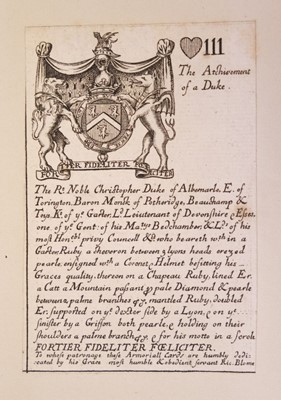 III
The Atchivement
of a Duke.
FORTIER FIDELITER FOELICITER
The Rt. Noble Christopher Duke of Albemarle, E. of
Torington, Baron Monck of Potheridge, Beauchamp &
Tey, Kt. of ye Garter, Ld. Lieutenant of Devonshire & Essex,
one of ye Gent: of his Matys Bedchamber, & Lds. of his
most Honble privy Councell &c. who beareth within a
Garter, Ruby a cheveron between 3 lyons heads erezed
pearle, ensigned with a Coronet, & Helmet befitting his
Graces quality, thereon on a Chapeau Ruby, lined Er.
a Catt a Mountain passant pr pale Diamond & pearle
between 2 palme branches mantled Ruby, doubled
Er. supported on ye dexter side by a Lyon, & on ye
sinister by a Griffon both pearle, & holding on their
shoulders a palme branch & for his motto in a scrole
FORTIER FIDELITER FŒLICITER.
To whose patronage these Armoriall Cards are humbly dedi
cated by his Grace most humble & obedient servant Ric. Blome